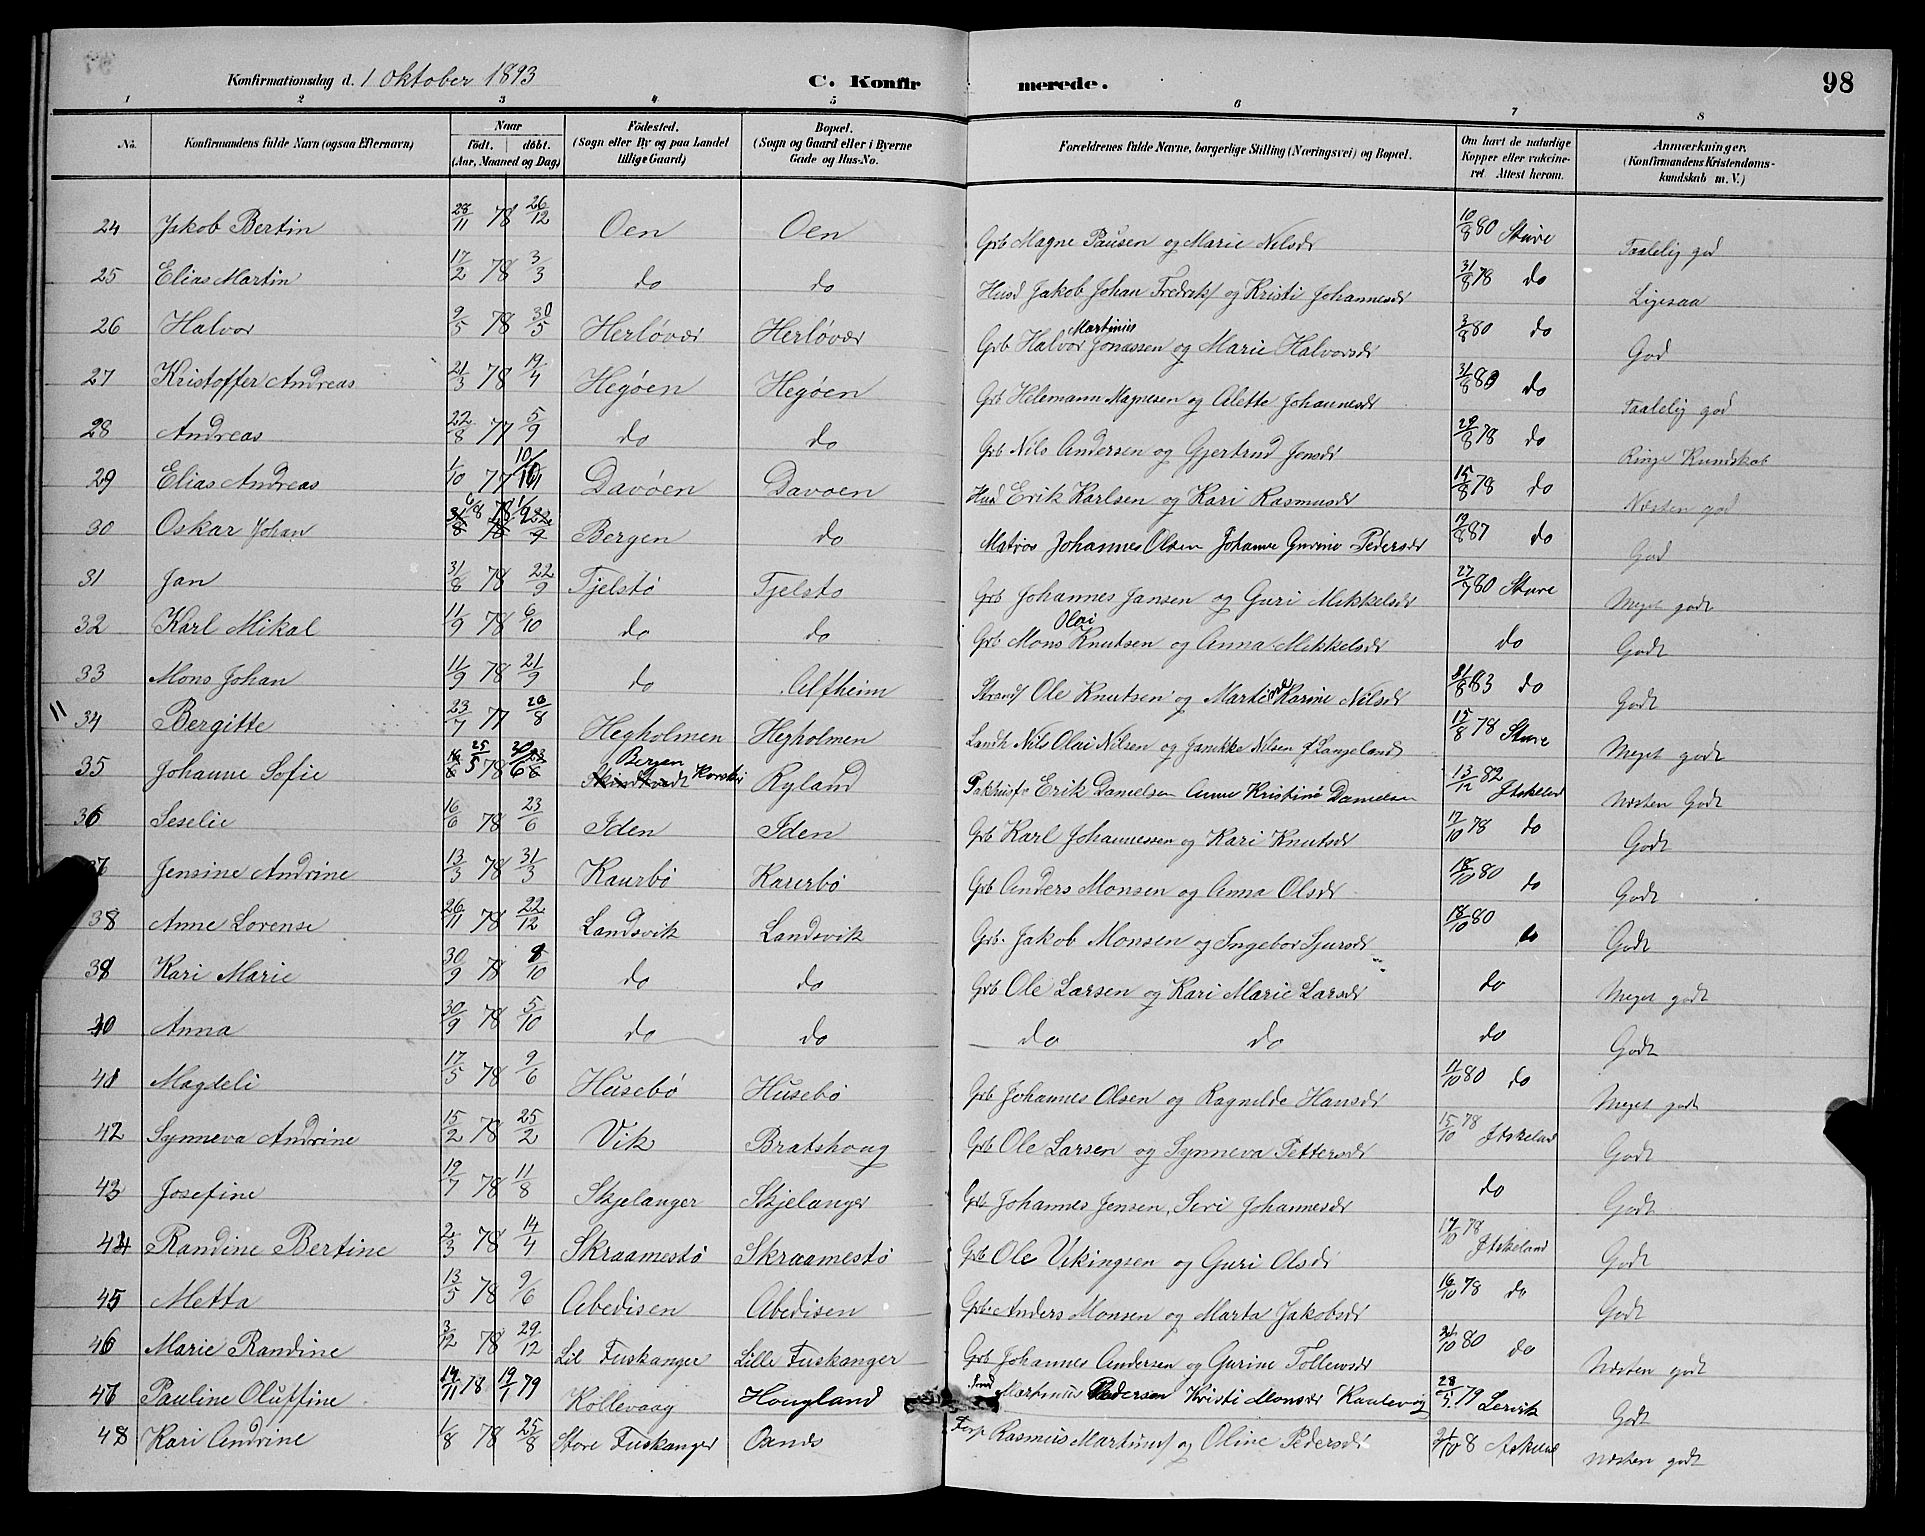 Konfirmationsdag d. 1 Oktober 1893 C. Konfirmerede. 98
1 2 3 4 5 6 7 8
No. Konfirmandens fulde Navn (ogsaa Efternavn) Naar født. døbt. (Aar, Maaned og Dag) Fødested. (Sogn eller By og paa Landet tillige Gaard) Bopæl. (Sogn og Gaard eller i Byerne Gade og Hus-No.) Forældrenes fulde Navne, borgerlige Stilling (Næringsvei) og Bopæl. Om havt de naturlige Kopper eller vakcineret. Attest herom. Anmærkninger. (Konfirmandens Kristendomskundskab m. V.)
24 Jakob Bertin 28/11 78 26/12 Oen Oen Grb Magne Paulsen og Marie Nilsdr 10/8 80 Sture Taalelig god
25 Elias Martin 17/2 78 3/3 do do Husd Jakob Johan Fredriks og Kristi Johannesdr 31/8 78 do Ligesaa
26 Halvor 9/5 78 30/5 Herløvær Herløvær Grb Halvor Martinius Jonassen og Marie Halvorsdr 3/8 80 do God
27 Kristoffer Andreas 21/3 78 19/4 Hegøen Hegøen Grb Helemann Magnesen og Alette Johannesdr 31/8 80 do Taalelig god
28 Andreas 22/8 77 5/9 do do Grb Nils Andersen og Gjertrud Jensdr 29/8 78 do Ringe Kundskab
29 Elias Andreas 1/10 77 Davøen Davøen Husd Erik Karlsen og Kari Rasmusdr 15/8 78 do Næsten god
30 Oskar Johan 6/8 78 Bergen do Matros Johannes Olsen Johanne Gurine Pedersdr 19/8 87 do God
31 Jan 31/8 78 22/9 Tjelstø Tjelstø Grb Johannes Jansen og Guri Mikkelsdr 27/7 80 Sture Meget godt
32 Karl Mikal 11/9 78 6/10 do do Grb Mons Olai Knutsen og Anna Mikkelsdr do Godt
33 Mons Johan 11/9 78 21/9 do Alfheim Strands Ole Knutsen og Karine Nilsdr 31/8 83 do Godt
34 Bergitte 23/7 77 26/8 Hegholmen Hegholmen Landh Nils Olai Nilsen og Janikke Nilsen f Langeland 15/8 78 Sture Meget godt
35 Johanne Sofie 25/5 78 Bergen Korski Ryland Erik Danielsen Anne Kristine Danielsen 13/12 82 Itskeland Næsten Godt
36 Seselie 16/6 78 23/6 Iden Iden Grb Karl Johannessen og Kari Knutsdr 17/10 78 do Godt
37 Jensine Andrine 13/3 78 31/3 Kaurbø Kaurbø Grb Anders Monsen og Anna Olsdr 18/10 80 do Godt
38 Anne Lorense 26/11 78 22/12 Landsvik Landsvik Grb. Jakob Monsen og Ingebor Sjursdr 18/10 80 do Godt
39 Kari Marie 30/9 78 8/10 do do Grb Ole Larsen og Kari Marie Larsdr do Meget godt
40 Anna 30/9 78 5/10 do do do do do Godt
41 Magdeli 17/5 78 9/6 Husebø Husebø Grb Johannes Olsen og Ragnilde Hansdr 11/10 80 do Meget godt
42 Synneva Andrine 15/2 78 25/2 Vik Bratshoug Grb Ole Larsen og Synneva Pettersdr 15/10 78 Itskeland Godt
43 Josefine 19/7 78 11/8 Skjelanger Skjelanger Grb Johannes Jensen, Siri Johannesdr do Godt
44 Randine Bertine 2/3 78 14/4 Skraamestø Skraamestø Grb Ole Vikingsen og Guri Olsdr 17/10 78 Itskeland Godt
45 Metta 13/5 78 9/6 Abedisen Abedisen Grb. Anders Monsen og Marta Jakobsdr 16/10 78 do Godt
46 Marie Randine 3/12 78 29/12 Lil Fuskanger Lille Fuskanger Grb Johannes Andersen og Gurine Tollevsdr 80 do Næsten godt
47 Pauline Oluffine 14/11 78 19/1 79 Kollevaag Hougland Martinus Pedersen Kristi Monsdr Kaulevog 79 Lervik Godt
48 Kari Andrine 1/8 78 25/8 Store Fuskanger Rasmus Martinus og Oline Pedersdr Askeland Næsten godt